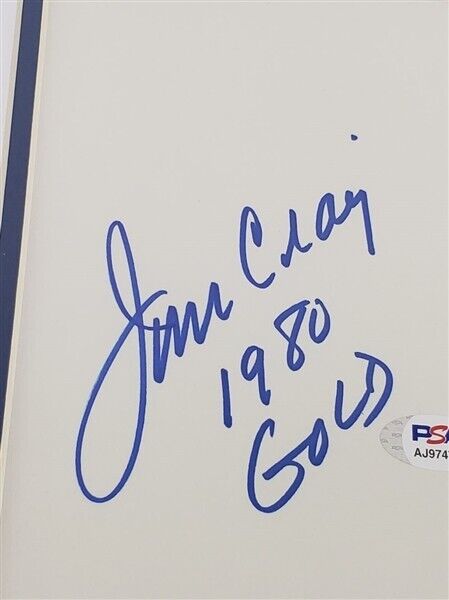 Jim Craig
1980
GOLD
PSA
AJ974